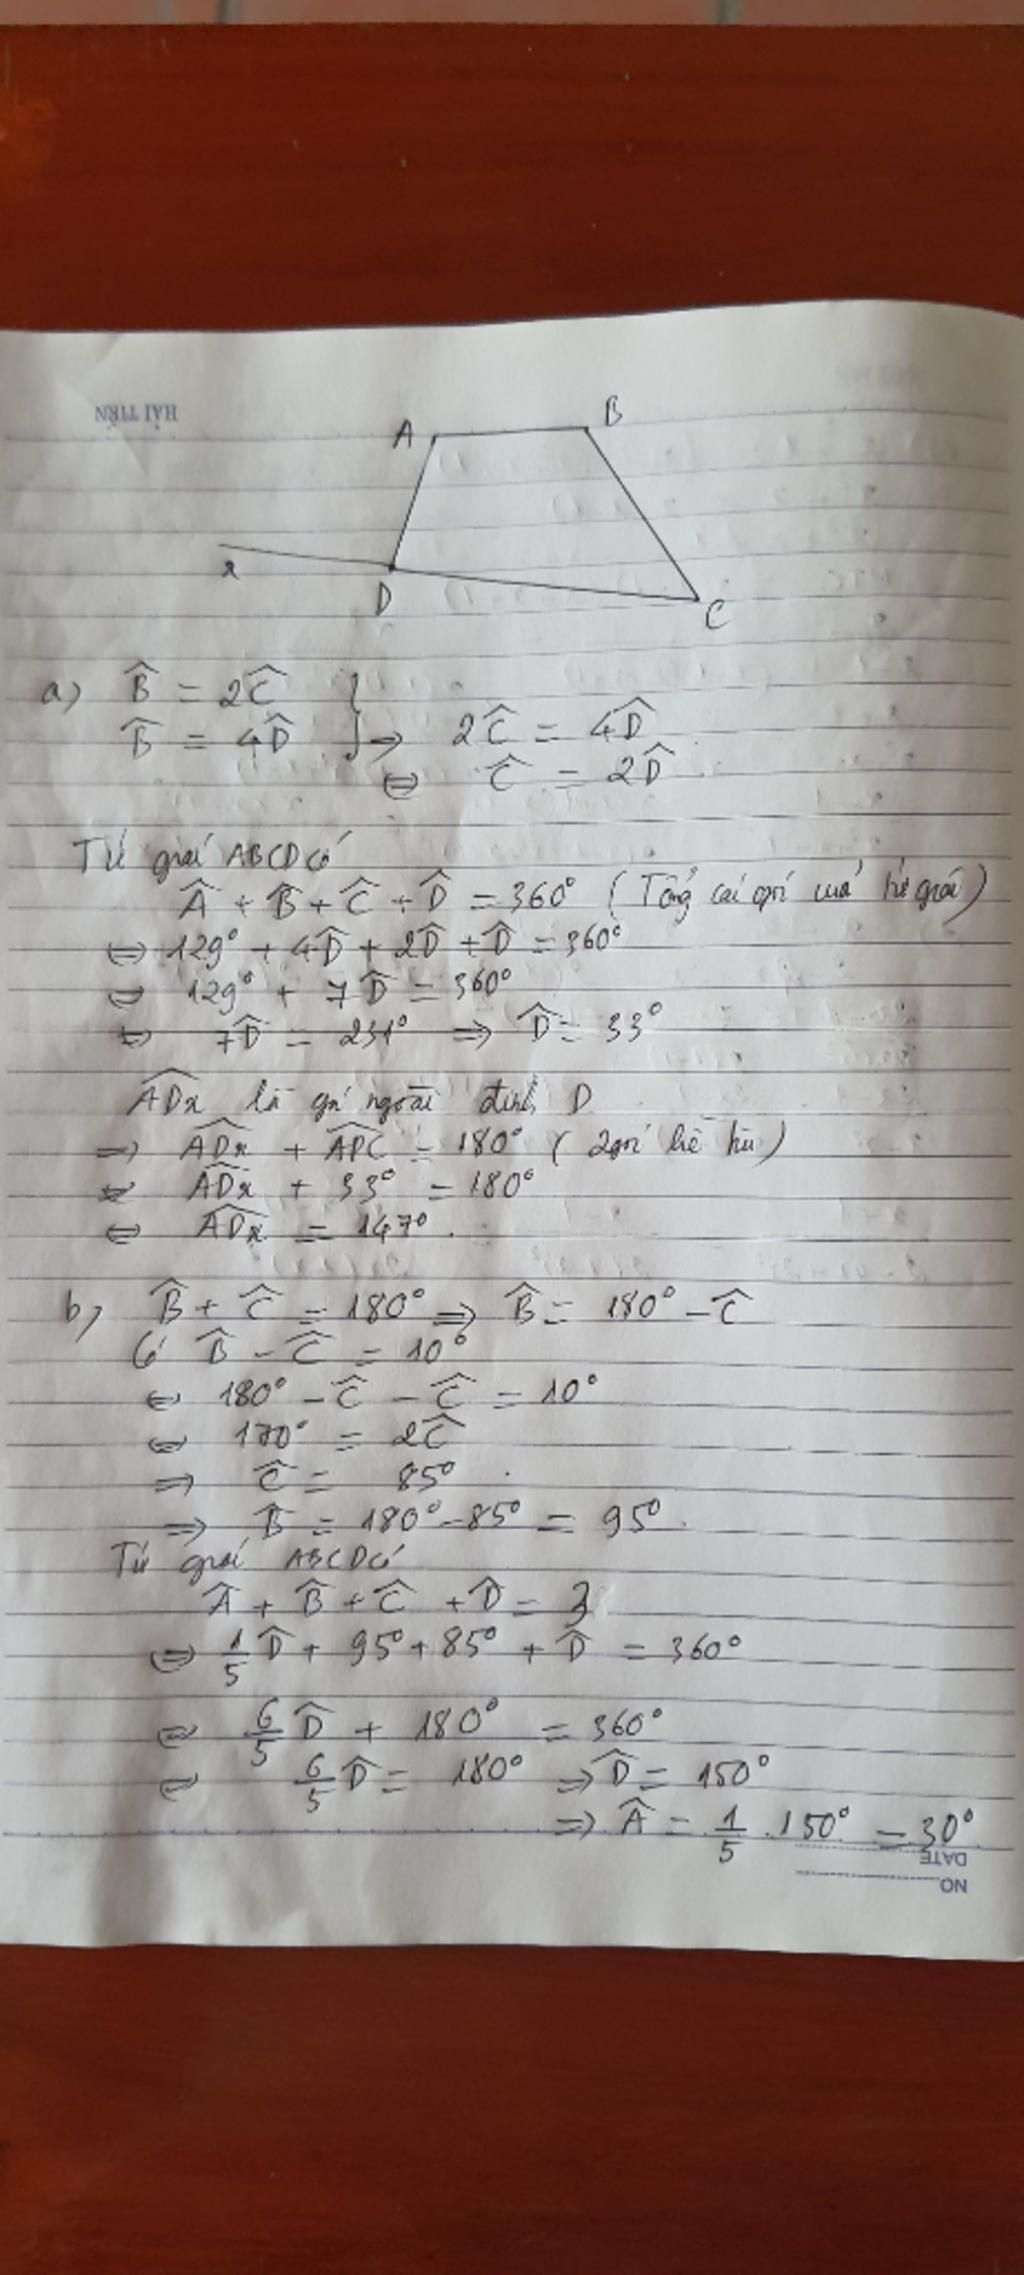 HẢI TIẾN
A B
x D C
a) B̂ = 2Ĉ }
B̂ = 4D̂ } ⇒ 2Ĉ = 4D̂
⇔ Ĉ = 2D̂
Tứ giác ABCD có
Â + B̂ + Ĉ + D̂ = 360° (Tổng các góc của tứ giác)
⇔ 129° + 4D̂ + 2D̂ + D̂ = 360°
⇔ 129° + 7D̂ = 360°
⇔ 7D̂ = 231° ⇒ D̂ = 33°
ADx là góc ngoài đỉnh D
⇒ ADx + ADC = 180° (2 góc kề bù)
⇔ ADx + 33° = 180°
⇔ ADx = 147°.
b) B̂ + Ĉ = 180° ⇒ B̂ = 180° - Ĉ
Có B̂ - Ĉ = 10°
⇔ 180° - Ĉ - Ĉ = 10°
⇔ 170° = 2Ĉ
⇒ Ĉ = 85°.
⇒ B̂ = 180° - 85° = 95°.
Tứ giác ABCD có
Â + B̂ + Ĉ + D̂ = 3
⇔ 1/5 D̂ + 95° + 85° + D̂ = 360°
⇔ 6/5 D̂ + 180° = 360°
⇔ 6/5 D̂ = 180° ⇒ D̂ = 150°
⇒ Â = 1/5 . 150° = 30°
DATE
NO